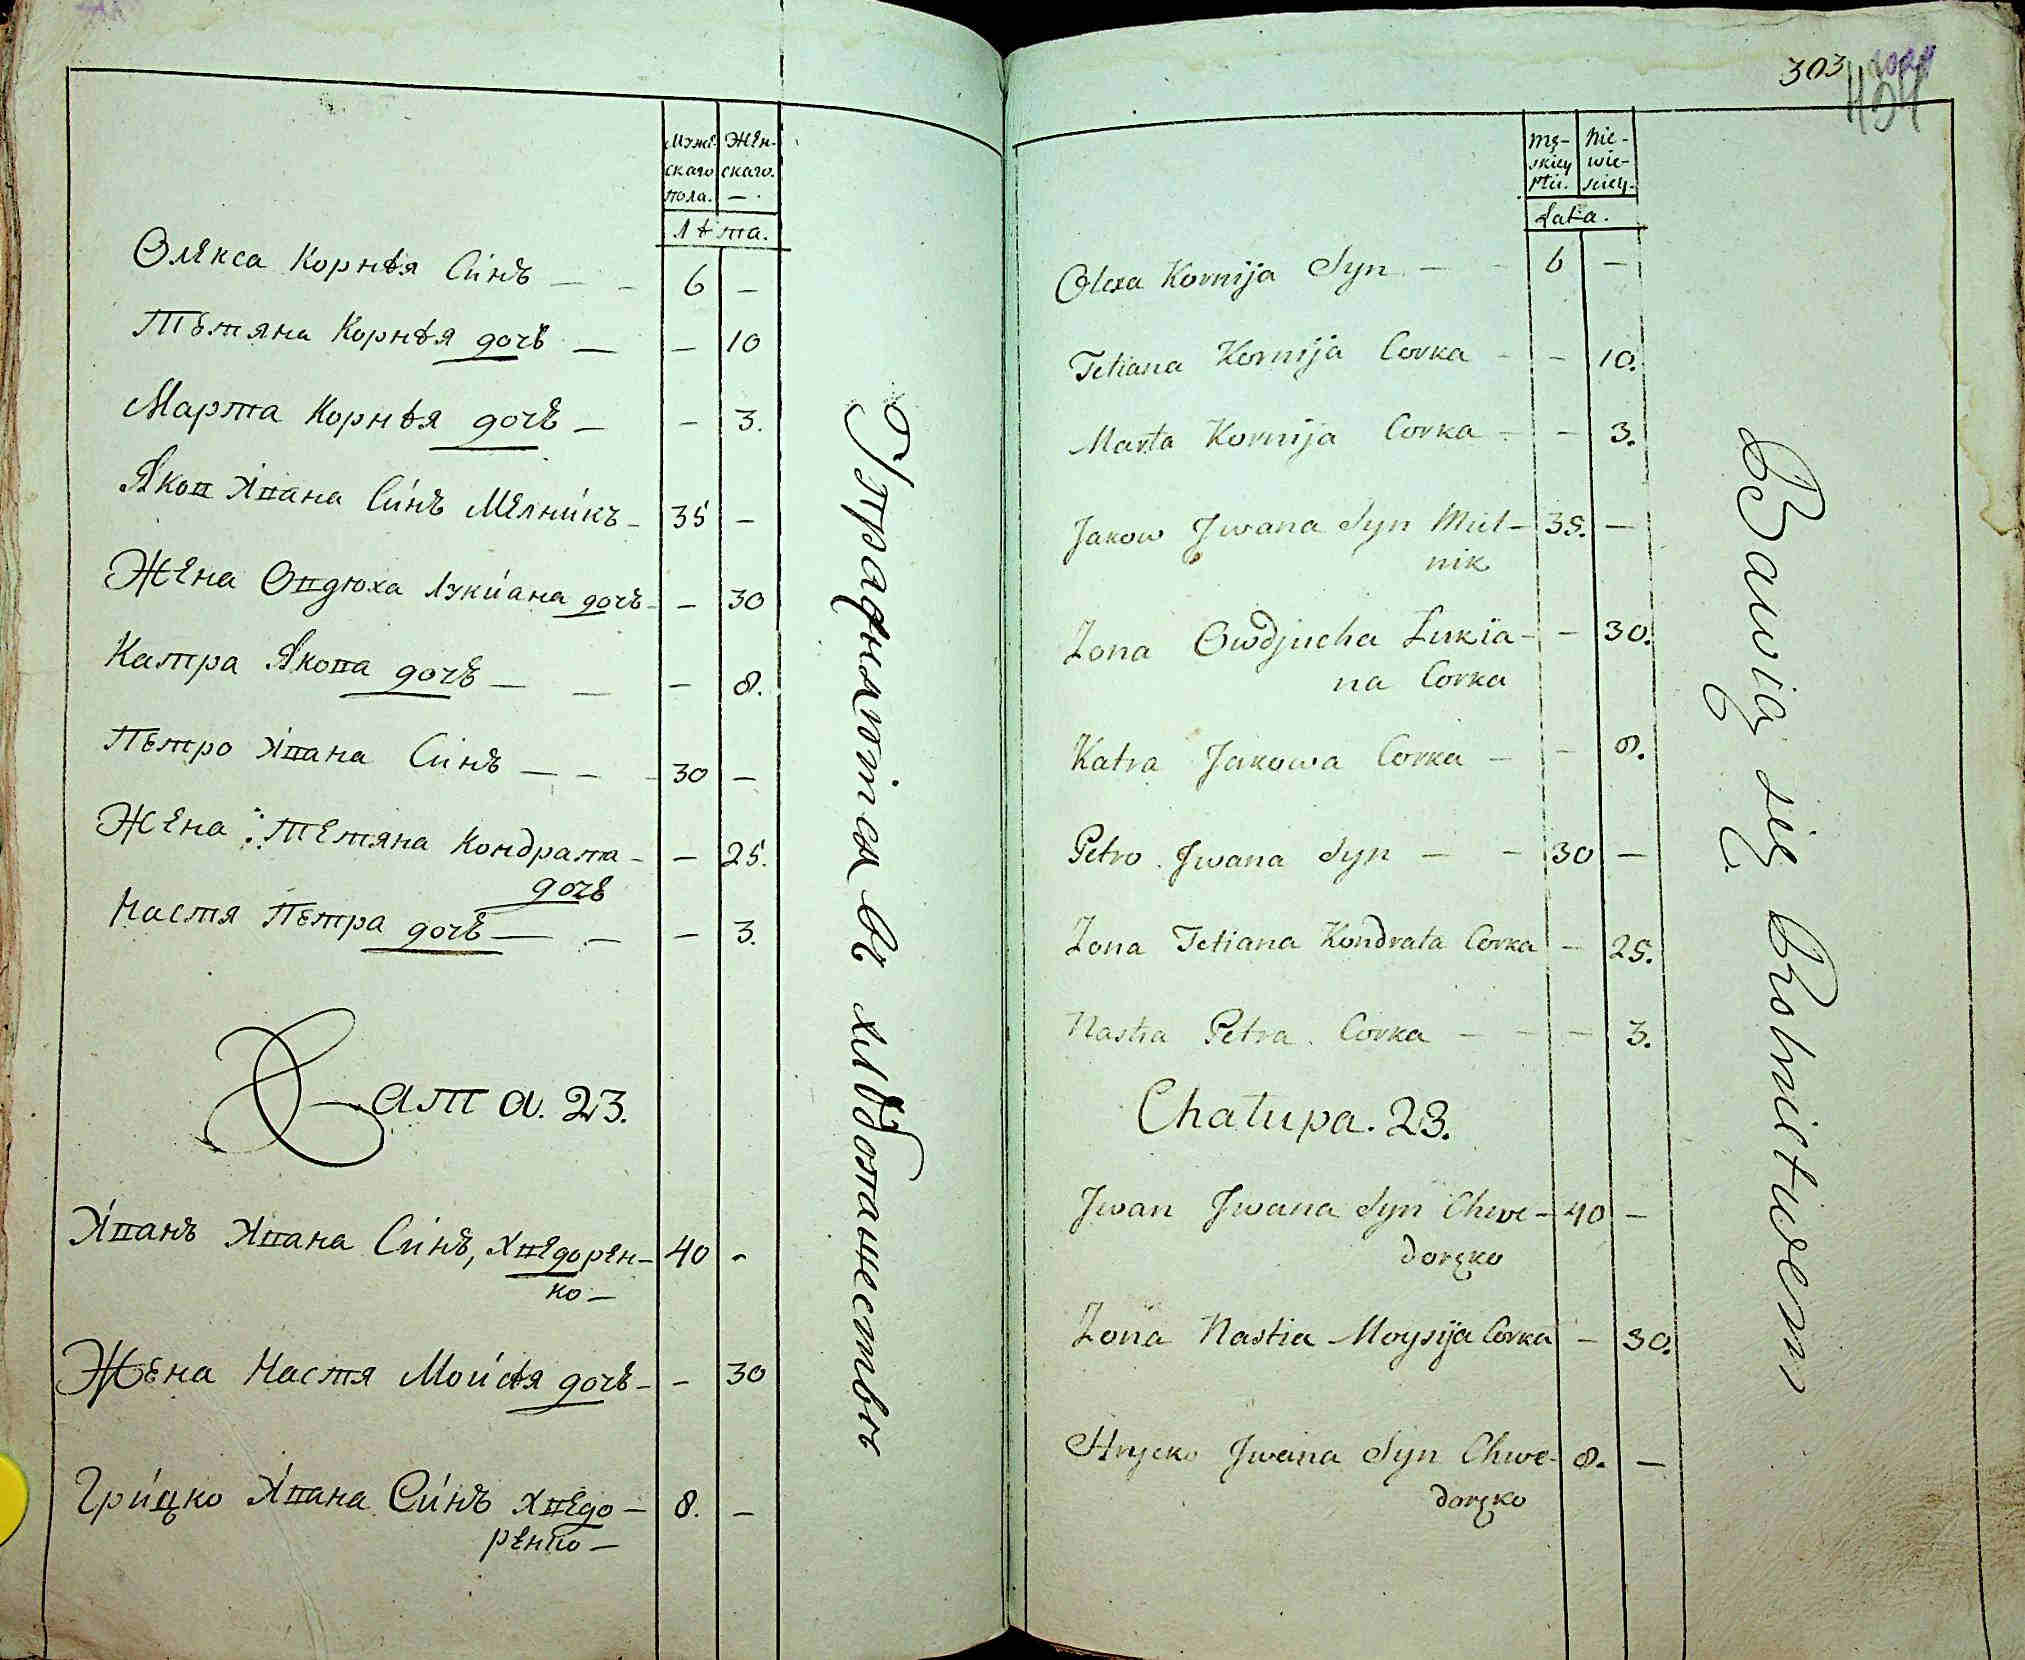 Муже- Жен-
скаго скаго.
пола. —.
Лѣта.
Олекса Корнѣя Синъ — — 6 —
Тетяна Корнѣя дочь — — 10
Марта Корнѣя дочь — — 3.
Яков Ивана Синъ Мелникъ — 35 —
Жена Овдюха Лукиана дочь — — 30
Катра Якова дочь — — — 8.
Петро Ивана Синъ — — — 30 —
Жена: Тетяна Кондрата — — 25.
дочь
Настя Петра дочь — — — 3.
Хата. 23.
Иванъ Ивана Синъ, Хведорен- 40 -
ко —
Жена Настя Мойсѣя дочь — — 30
Грицко Ивана Синъ Хведо — 8. —
ренко —
Упражняются въ хлѣбопашествѣ
303
Mę- Nie-
skiey wie-
Płci. sciey.
Lata.
Olexa Kornija Syn — - 6 —
Tetiana Kornija Corka - - 10.
Marta Kornija Corka - - 3.
Jakow Jwana Syn Miel- 35. —
nik
Zona Owdjucha Lukia- - 30.
na Corka
Katra Jakowa Corka — - 8.
Petro Jwana Syn — - 30 —
Zona Tetiana Kondrata Corka - 25.
Nastia Petra Corka — - - 3.
Chałupa. 23.
Jwan Jwana Syn Chwe- 40 —
doręko
Zona Nastia Moysija Corka - 30.
Hrycko Jwana Syn Chwe- 8. —
doręko
Bawią się Rolnictwem